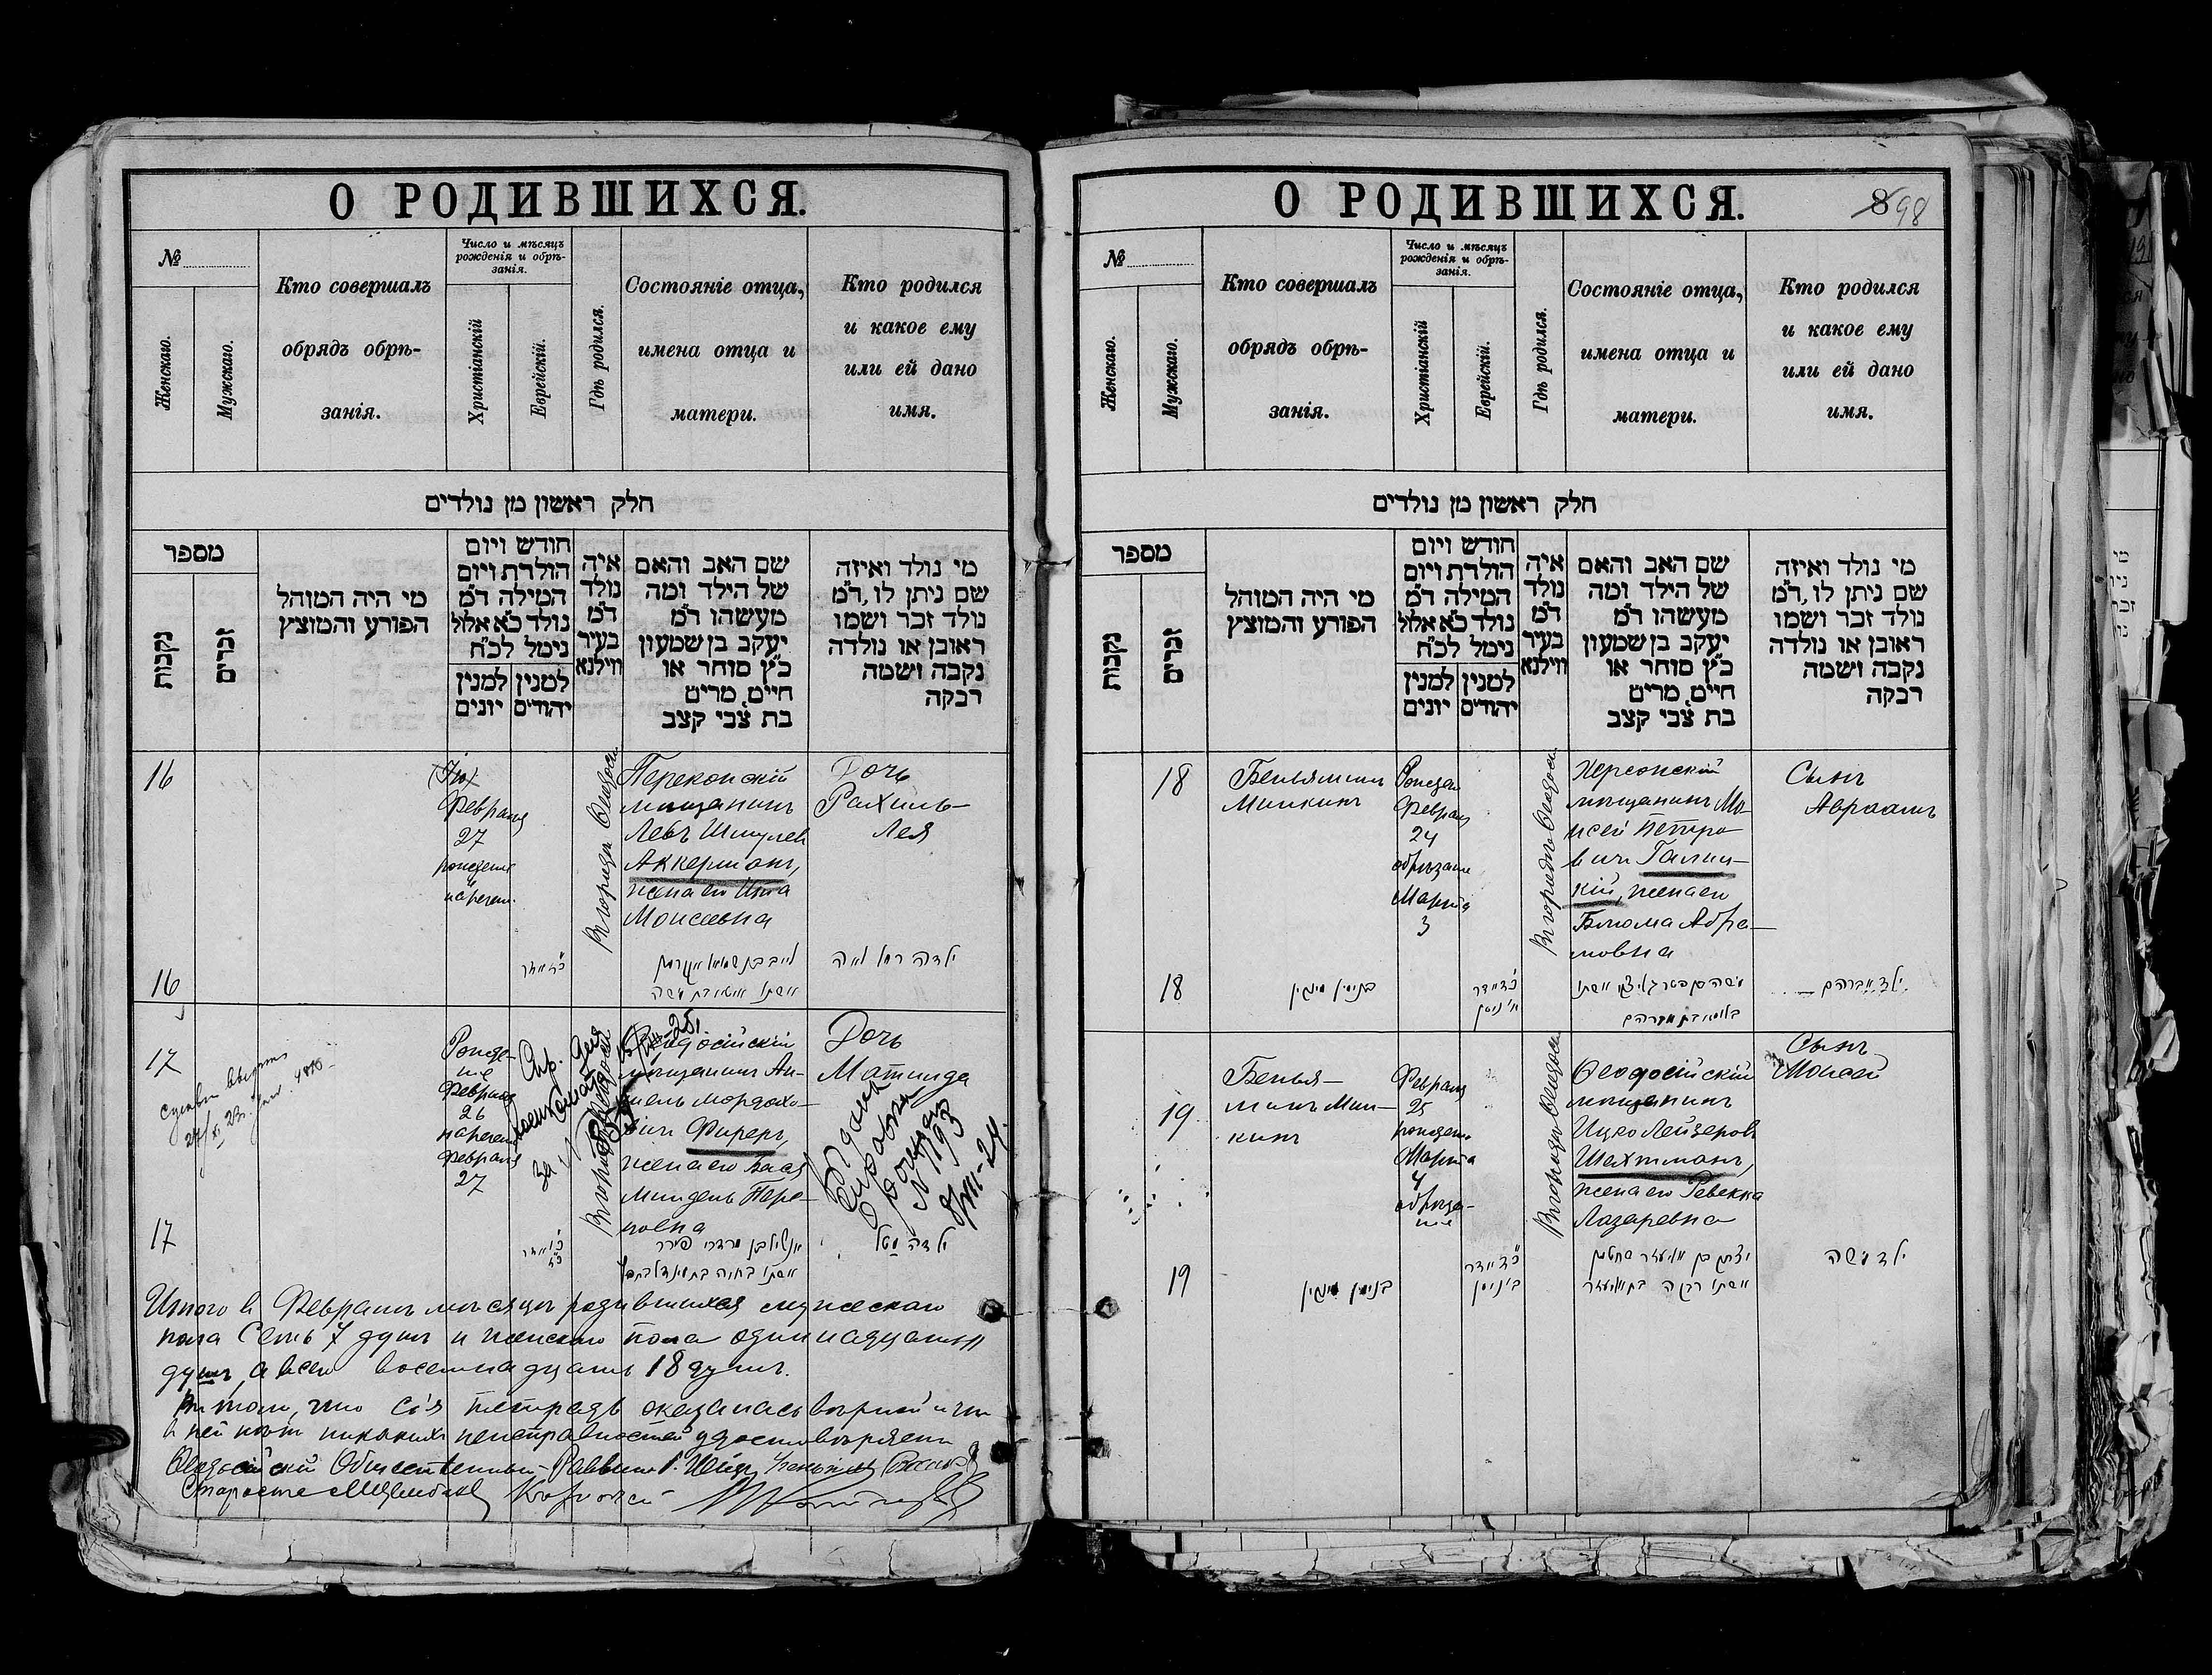 О РОДИВШИХСЯ.
№
Женскаго.
Мужскаго.
Кто совершалъ
обрядъ обрѣ-
занія.
Число и мѣсяцъ
рожденія и обрѣ-
занія.
Христіанскій
Еврейскій.
Гдѣ родился.
Состояніе отца,
имена отца и
матери.
Кто родился
и какое ему
или ей дано
имя.
חלק ראשון מן נולדים
מספר
נקבות
זכרים
מי היה המוהל
הפורע והמוצץ
חודש ויום
הולדת ויום
המילה ד״מ
נולד כ״א אלול
נימל לכ״ח
למנין יונים
למנין יהודים
איה
נולד
ד״מ
בעיר
ווילנא
שם האב והאם
של הילד ומה
מעשהו ד״מ
יעקב בן שמעון
כ״ץ סוחר או
חייט, מרים
בת צבי קצב
מי נולד ואיזה
שם ניתן לו, ד״מ
נולד זכר ושמו
ראובן או נולדה
נקבה ושמה
רבקה
16
Февраля
27
рожденіе
и
наречен.
Въ городѣ Ѳеодосіи
Перекопскій
мѣщанинъ
Левъ Шмулев
Аккерманъ,
жена его
Моисеевна
Дочь
Рахиль-
Лея
ילדה רחל לאה
16
17
Рожде-
ніе
Февраля
26
наречен
Февраля
27
Въ городѣ Ѳеодосіи
Ѳеодосійскій
мѣщанинъ Ан-
шель Мордахо-
вичъ Фиреръ,
жена его Бася
Миндель
Дочь
Матильда
Выдана
справка
№ 1193
8/VIII-24.
17
Итого въ Февралѣ мѣсяцѣ родившихся мужескаго
пола семь 7 душъ и женскаго пола одиннадцать 11
душъ, а всего восемнадцать 18 душъ.
въ томъ, что сія тетрадь оказалась вѣрной и что
въ ней нѣтъ никакихъ неисправностей удостовѣряемъ
Ѳеодосійскій Общественный Раввинъ
Староста
О РОДИВШИХСЯ.
8
98
№
Женскаго.
Мужскаго.
Кто совершалъ
обрядъ обрѣ-
занія.
Число и мѣсяцъ
рожденія и обрѣ-
занія.
Христіанскій
Еврейскій.
Гдѣ родился.
Состояніе отца,
имена отца и
матери.
Кто родился
и какое ему
или ей дано
имя.
חלק ראשון מן נולדים
מספר
נקבות
זכרים
מי היה המוהל
הפורע והמוצץ
חודש ויום
הולדת ויום
המילה ד״מ
נולד כ״א אלול
נימל לכ״ח
למנין יונים
למנין יהודים
איה
נולד
ד״מ
בעיר
ווילנא
שם האב והאם
של הילד ומה
מעשהו ד״מ
יעקב בן שמעון
כ״ץ סוחר או
חייט, מרים
בת צבי קצב
מי נולד ואיזה
שם ניתן לו, ד״מ
נולד זכר ושמו
ראובן או נולדה
נקבה ושמה
רבקה
18
Беньяминъ
Минкинъ
Рожден
Февраля
24
обрѣзаніе
Марта
3
Въ городѣ Ѳеодосіи
Херсонскій
мѣщанинъ Мо-
исей Петро-
вичъ Галиц-
кій, жена его
Блюма Абра-
мовна
Сынъ
Авраамъ
18
בנימין מינקין
ילד אברהם
19
Бенья-
минъ Мин-
кинъ
Февраля
25
рожден.
Марта
4
обрѣза-
ніе
Въ городѣ Ѳеодосіи
Ѳеодосійскій
мѣщанинъ
Ицко Лейзеровъ
Шахтманъ,
жена его Ревекка
Лазаревна
Сынъ
Моисей
19
בנימין מינקין
ילד משה